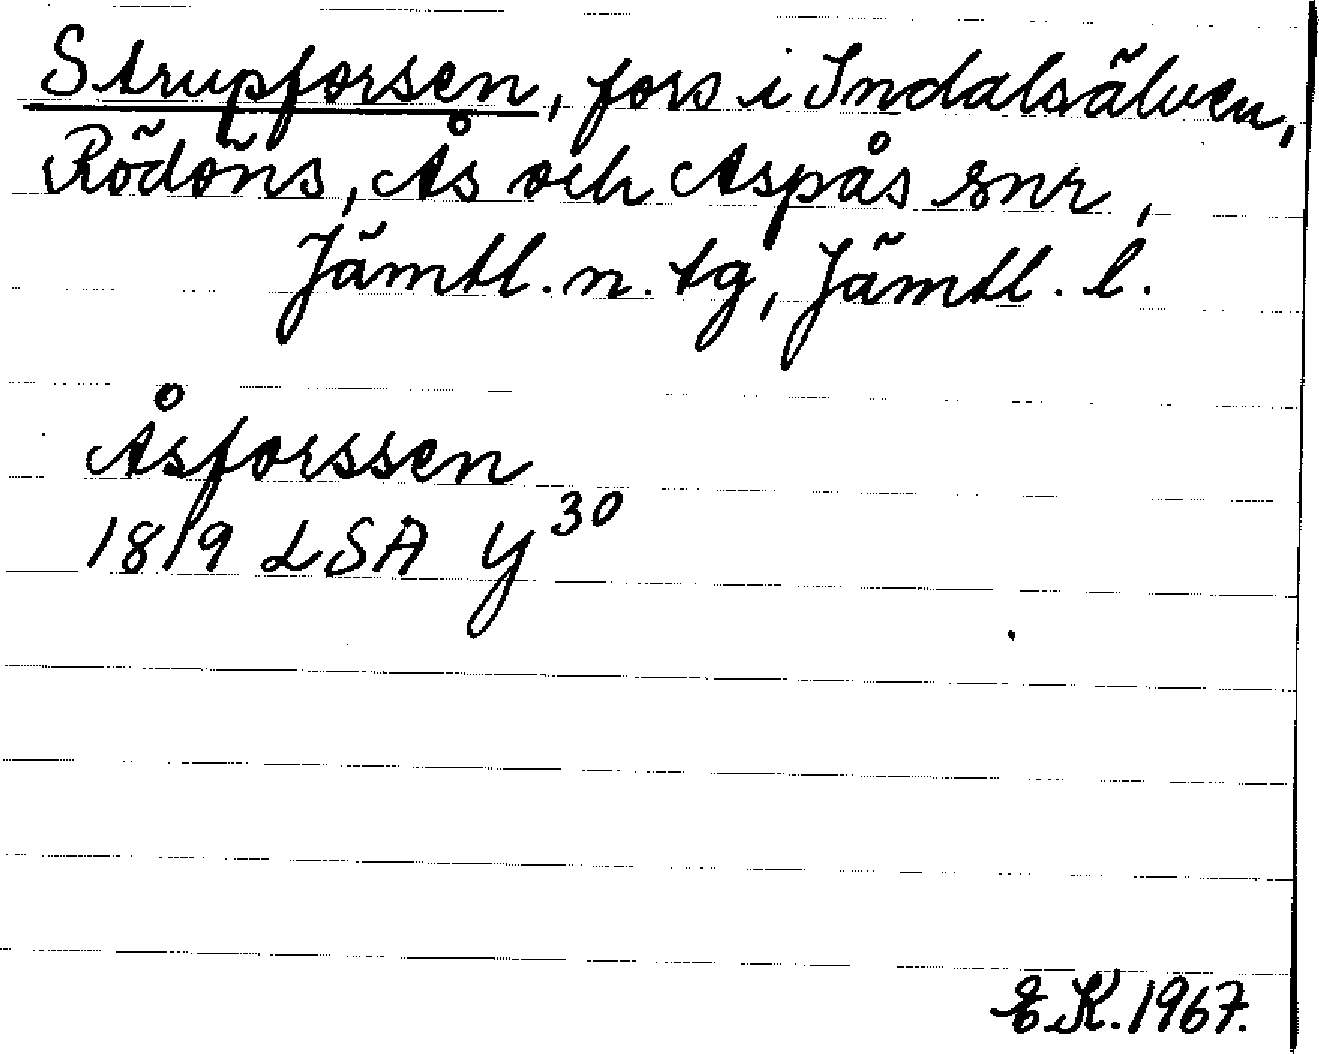 Strupforsen, fors i Indalsälven,
Rödöns, Ås och Aspås snr,
Jämtl. n. tg, Jämtl. l.
Åsforssen
1819 LSA Y 30
E.K. 1967.